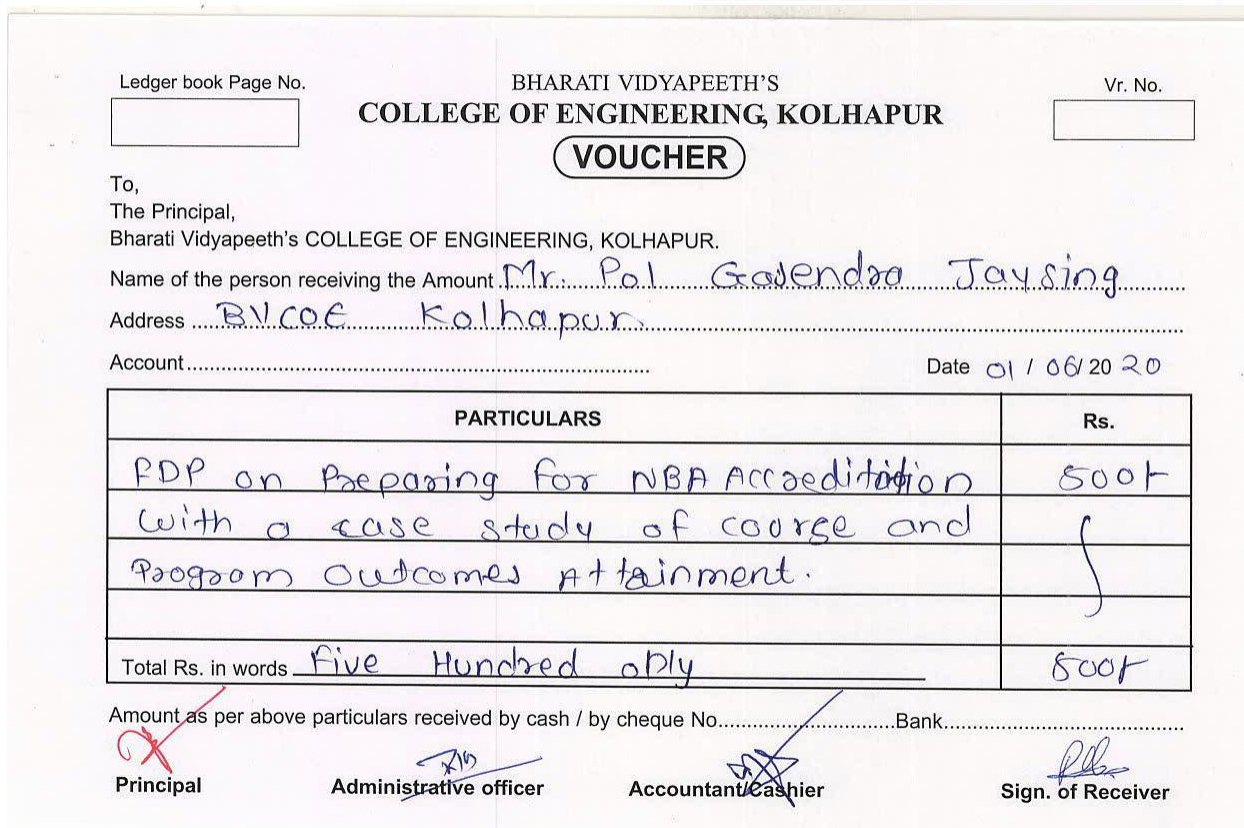 Ledger book Page No.
BHARATI VIDYAPEETH'S
Vr. No.
COLLEGE OF ENGINEERING, KOLHAPUR
VOUCHER
To,
The Principal,
Bharati Vidyapeeth's COLLEGE OF ENGINEERING, KOLHAPUR.
Name of the person receiving the Amount Mr. Pol Gajendra Jaysing
Address BVCOE Kolhapur
Account Date 01 / 06/ 20 20
PARTICULARS Rs.
FDP on Preparing for NBA Accreditation 500/-
with a case study of course and
Program Outcomes Attainment.
Total Rs. in words Five Hundred only 500/-
Amount as per above particulars received by cash / by cheque No. Bank
Principal Administrative officer Accountant/Cashier Sign. of Receiver